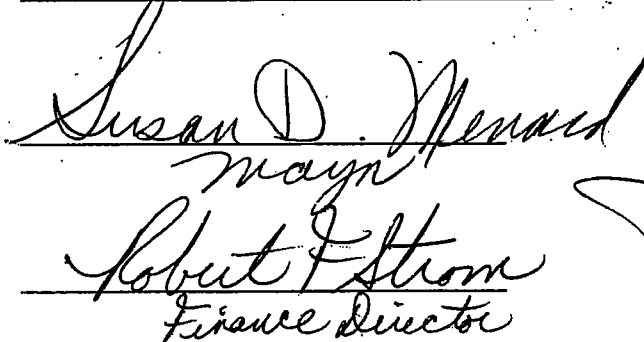 Susan D. Menard
Mayor
Robert F Strom
Finance Director